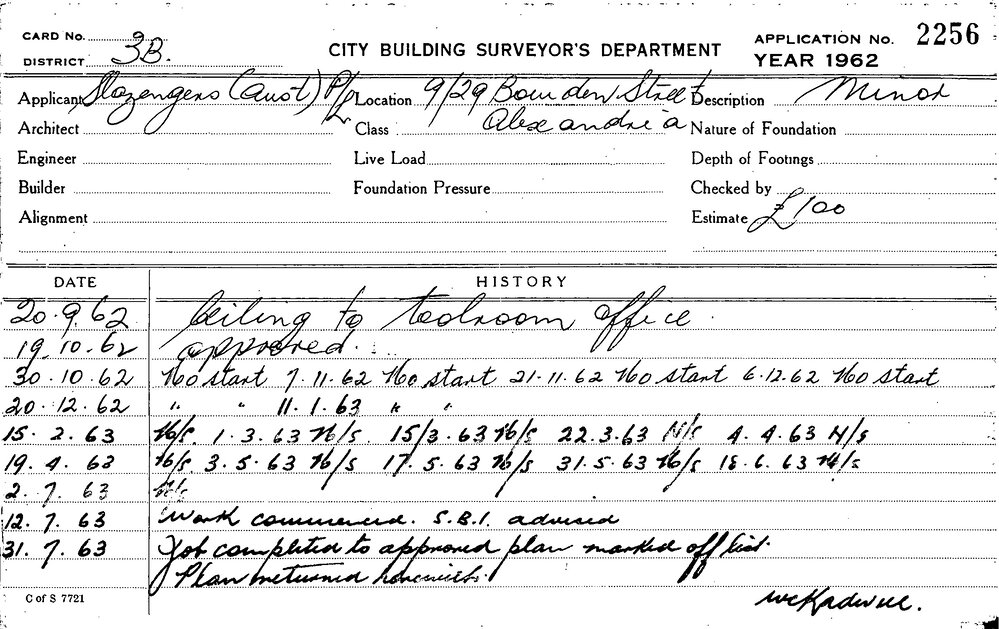 CARD No. CITY BUILDING SURVEYOR'S DEPARTMENT APPLICATION No. 2256
DISTRICT 3B. YEAR 1962
Applicant Slazengers (Aust) P/L Location 9/29 Bowden Street Description Minor
Architect Class Alexandria Nature of Foundation
Engineer Live Load Depth of Footings
Builder Foundation Pressure Checked by
Alignment Estimate £100
DATE HISTORY
20.9.62 Ceiling to toolroom office.
19.10.62 approved.
30.10.62 No start 7.11.62 No start 21.11.62 No start 6.12.62 No start
20.12.62 " " 11.1.63 " "
15.2.63 N/s. 1.3.63 N/s. 15/3.63 N/s 22.3.63 N/s 4.4.63 N/s
19.4.63 N/s 3.5.63 N/s 17.5.63 N/s 31.5.63 N/s 18.6.63 N/s
2.7.63 N/s
12.7.63 Work commenced. S.B.I. advised
31.7.63 Job completed to approved plan marked off list.
Plan returned herewith.
C of S 7721